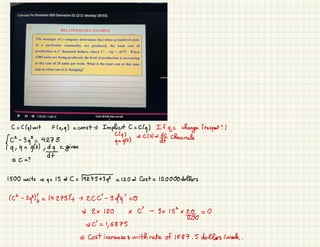 Calculus for Business 003 Derivative 02 [212, Monday 26/02]
RELATED RATES, EXAMPLE
The manager of a company determines that when q hundred units
of a particular commodity are produced, the total cost of
production is C thousand dollars, where C² − 3q³ = 4275 . When
1500 units are being produced, the level of production is increasing
at the rate of 20 units per week. What is the total cost at this time
and at what rate is it changing?
C = C(q) unit F(c,q) = const → Implicit C = C(q) If q,c change (respect t)
C² - 3q³ = 4275 C(q) q = q(t) → C(t) → dC/dt Chain rule
q, q = q(t), dq/dt = given
→ C = ?
1500 units → q = 15 → C = √4275+3q³ = 120 → Cost = 120000 dollars
→ 2 × 120 × C' - 9 × 15² × 20/100 = 0
→ C' = 1,6875
→ Cost increases with rate of 1687.5 dollars/week.